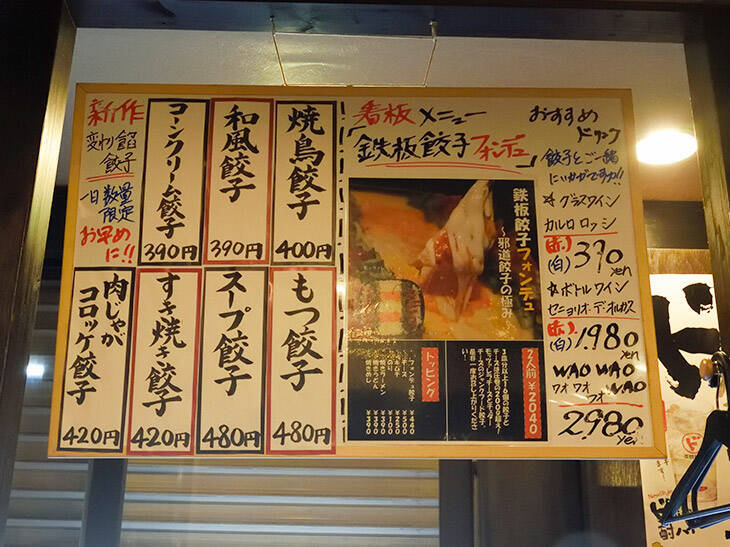 新作
変わり餡
餃子
一日数量
限定
お早め
に!!
焼鳥餃子
400円
和風餃子
390円
コーンクリーム餃子
390円
もつ餃子
480円
スープ餃子
480円
すき焼き餃子
420円
肉じゃが
コロッケ餃子
420円
看板メニュー
鉄板餃子フォンデュ
鉄板餃子フォンデュ
～邪道餃子の極み～
2人前 ¥2040
トッピング
おすすめ
ドリンク
餃子とご一緒
にいかがですか!!
グラスワイン
カルロロッシ
(赤)
(白) 390 yen
ボトルワイン
セニョリオ・デ・オルガス
(赤)
(白) 1,980 yen
WAO WAO WAO
ワオ ワオ ワオ
2,980 yen